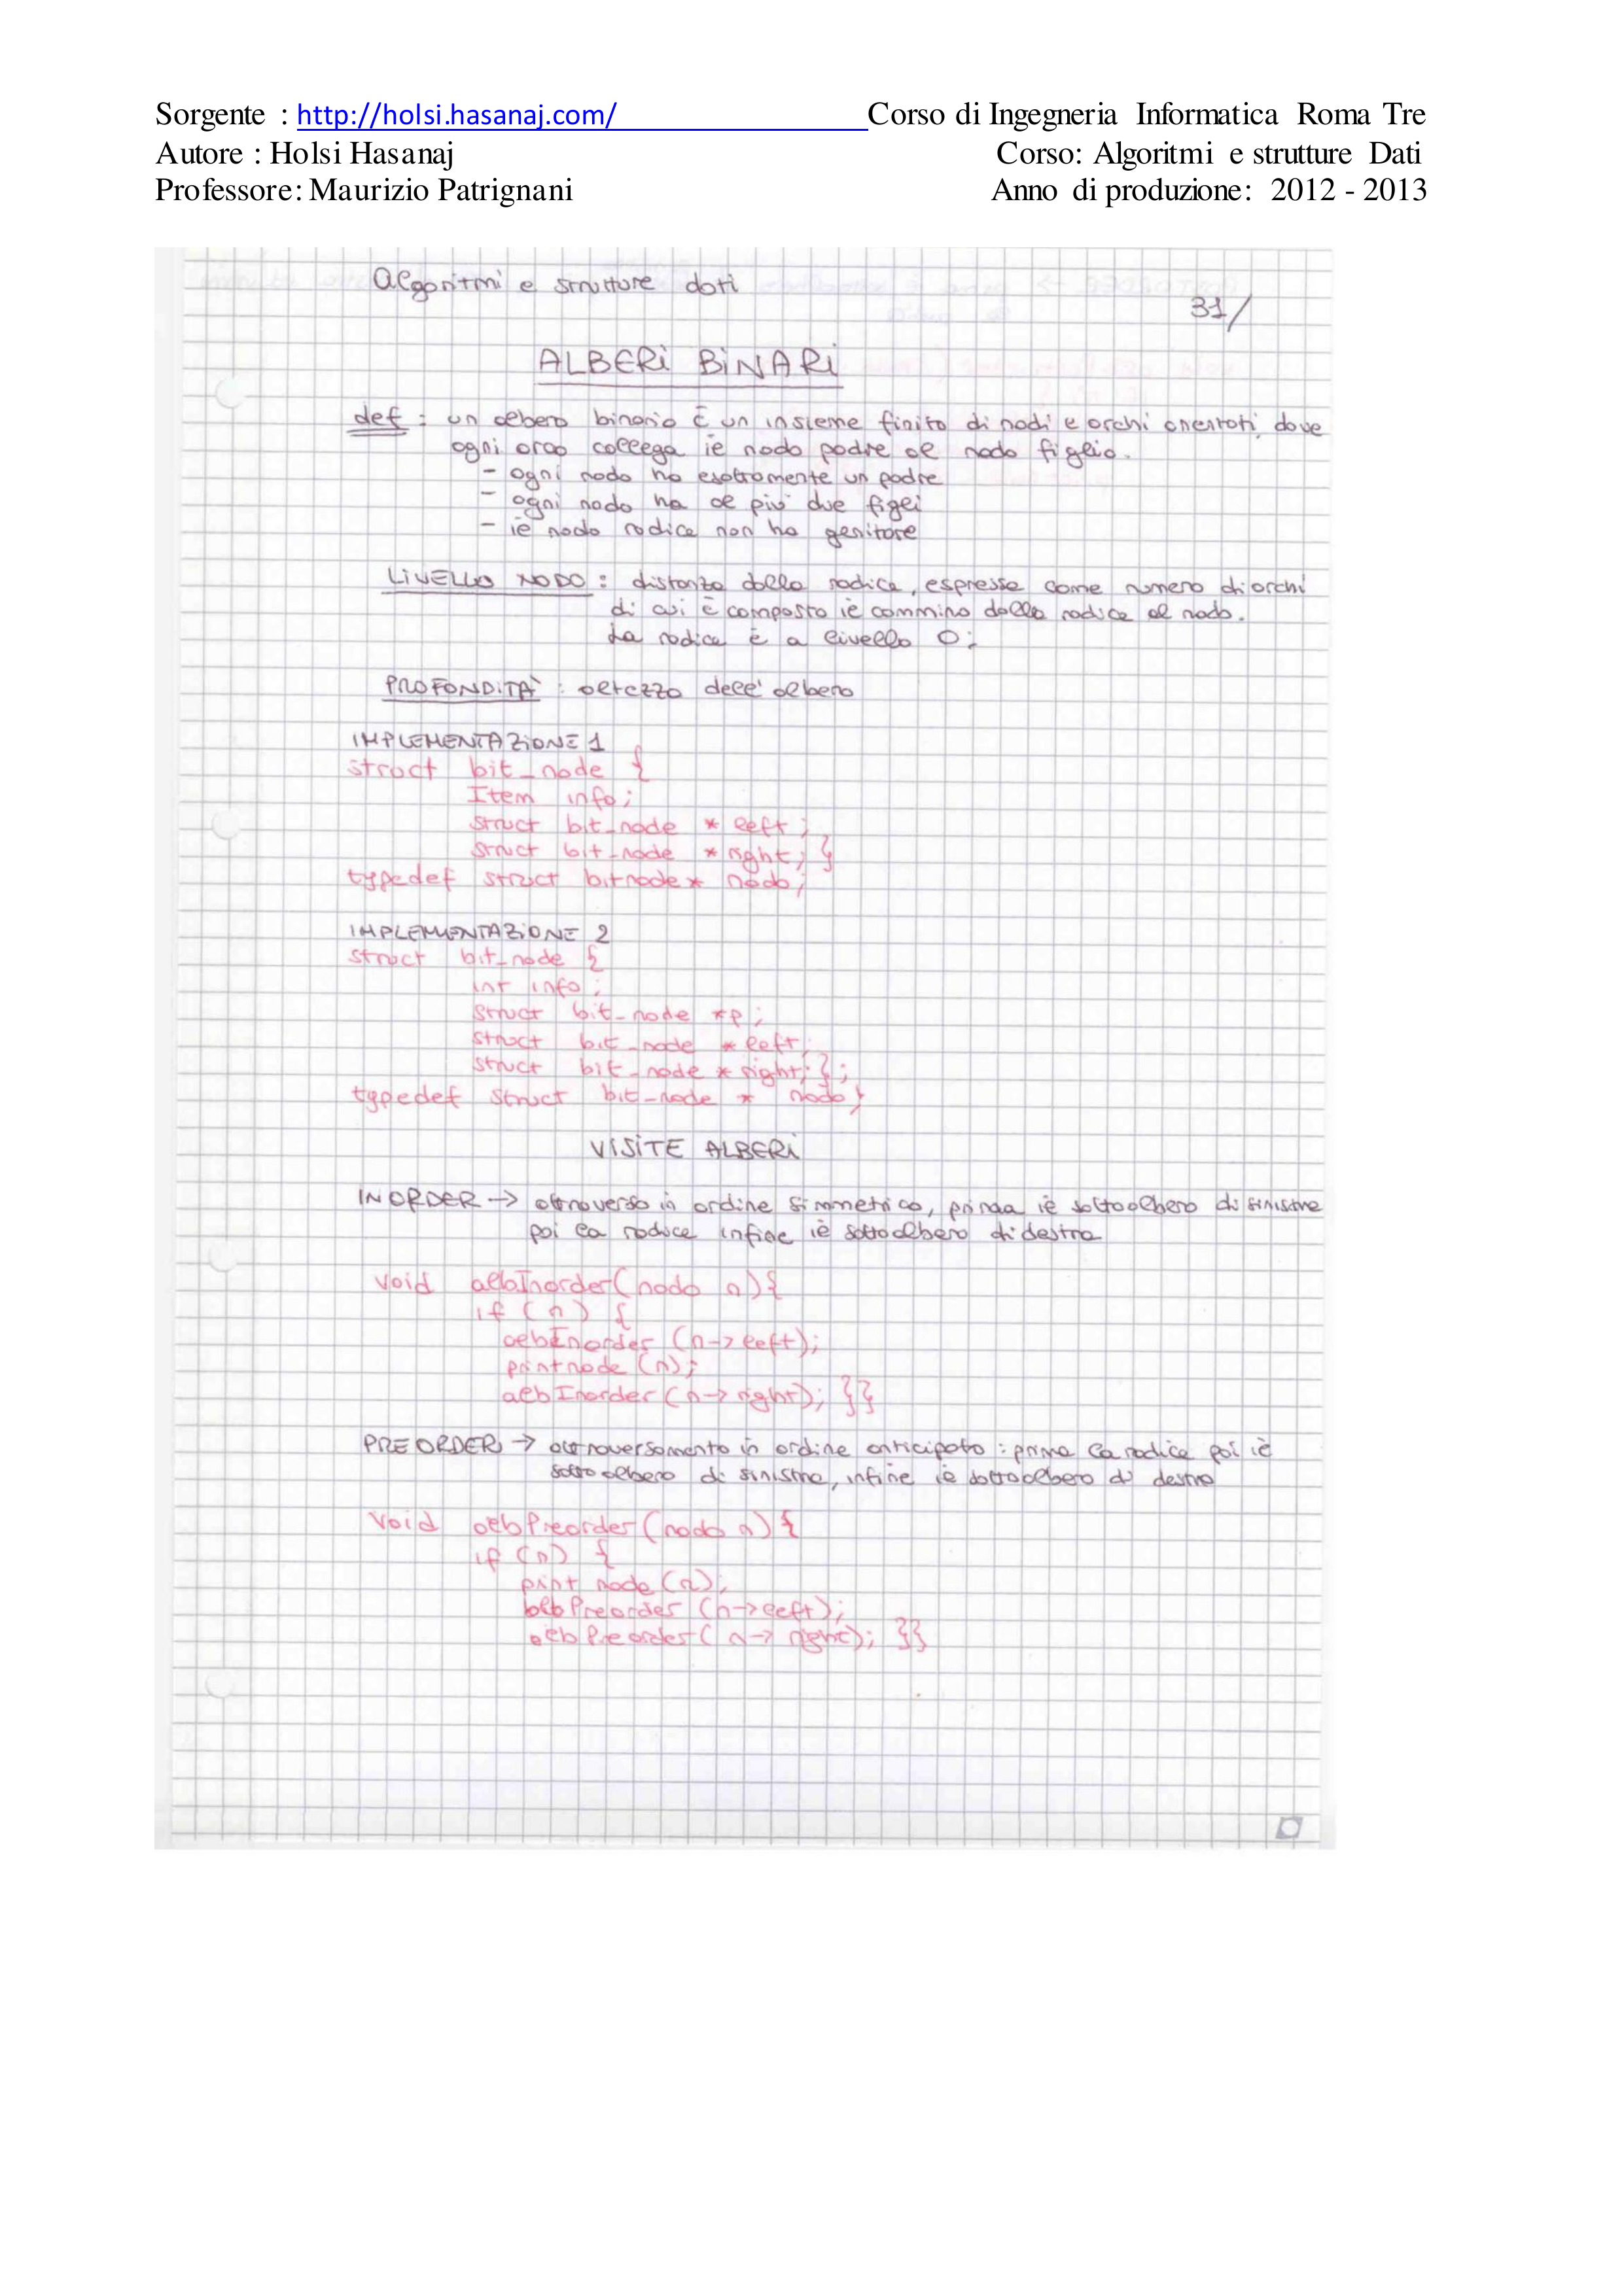 Sorgente : http://holsi.hasanaj.com/ Corso di Ingegneria Informatica Roma Tre
Autore : Holsi Hasanaj Corso: Algoritmi e strutture Dati
Professore: Maurizio Patrignani Anno di produzione: 2012 - 2013
Algoritmi e strutture dati
31/
ALBERI BINARI
def : un albero binario è un insieme finito di nodi e archi orientati, dove
ogni arco collega il nodo padre al nodo figlio.
- ogni nodo ha esattamente un padre
- ogni nodo ha al più due figli
- il nodo radice non ha genitore
LIVELLO NODO : distanza dalla radice, espressa come numero di archi
di cui è composto il cammino dalla radice al nodo.
La radice è a livello 0;
PROFONDITÀ : altezza dell'albero
IMPLEMENTAZIONE 1
struct bit_node {
Item info;
struct bit_node * left;
struct bit_node * right; }
typedef struct bitnode* nodo;
IMPLEMENTAZIONE 2
struct bit_node {
int info;
struct bit_node *p;
struct bit_node * left;
struct bit_node * right; };
typedef struct bit_node * nodo;
VISITE ALBERI
INORDER → attraverso in ordine simmetrico, prima il sottoalbero di sinistra
poi la radice infine il sottoalbero di destra
void albInorder(nodo n){
if (n) {
albInorder (n->left);
printnode (n);
albInorder (n->right); }}
PREORDER → attraversamento in ordine anticipato : prima la radice poi il
sottoalbero di sinistra, infine il sottoalbero di destra
void albPreorder (nodo n) {
if (n) {
print node (n);
albPreorder (n->left);
albPreorder ( n-> right); }}